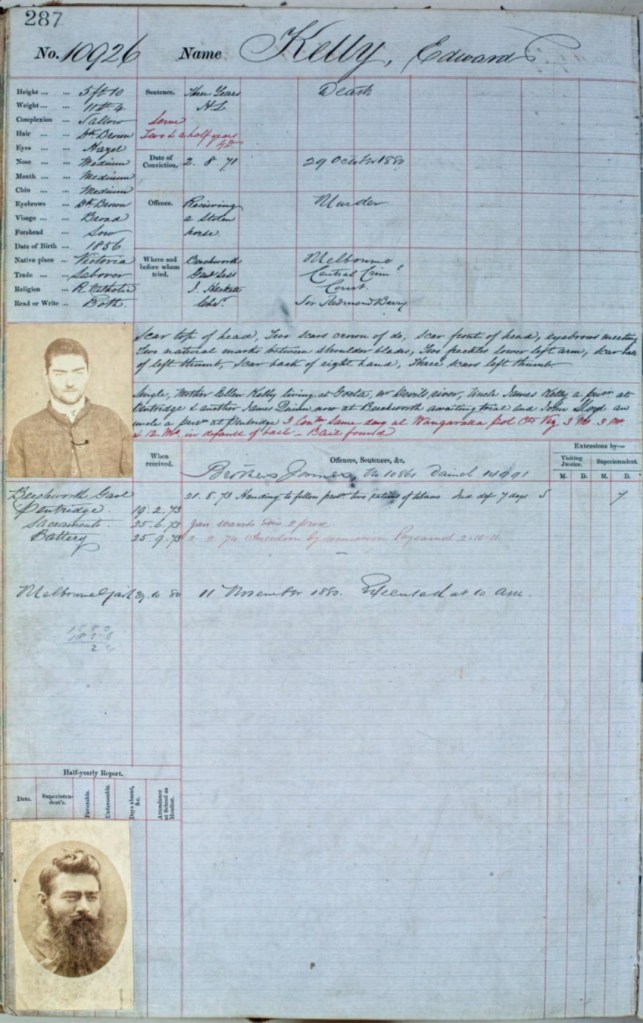 287
No. 10926 Name Kelly, Edward
Height ... 5 ft 10
Weight ... 11 st 4
Complexion Sallow
Hair Dk Brown
Eyes Hazel
Nose Medium
Mouth Medium
Chin Medium
Eyebrows Dk Brown
Visage Broad
Forehead Low
Date of Birth 1856
Native place Victoria
Trade Labourer
Religion R. Catholic
Read or Write Both
Sentence. Three Years Death
H L
Two & a half years
Date of Conviction. 2. 8. 71 29 October 1880
Offence. Receiving Murder
a Stolen
horse.
Where and before whom tried. Beechworth Melbourne
Central Crim'l
Court.
Sir Redmond Barry
Scar top of head, Two scars crown of do, scar front of head, eyebrows meeting
Two natural marks between shoulder blades, Two freckles lower left arm, scar
of left thumb, Scar back of right hand, Three scars left thumb
Single, Mother Ellen Kelly living at Greta, Uncle James Kelly a
Pentridge & another James Quinn now at Beechworth awaiting trial and John Lloyd an
uncle a at Pentridge same day at Wangaratta
in default of bail - Bail found
When received.
Offences, Sentences, &c.
Extensions by—
Visiting Justice.
Superintendent.
M. D. M. D.
Brothers James No 10861 Daniel
Beechworth Gaol
Pentridge 19. 2. 73
Sacramento 25. 6. 73
Battery 25. 9. 73
7 days 7
Melbourne Gaol 29. 10 80 11 November 1880. Executed at 10 am.
Half-yearly Report.
Date.
Superintendent's.
Favourable.
Unfavourable.
Days absent, &c.
Attendance at School or Muster.